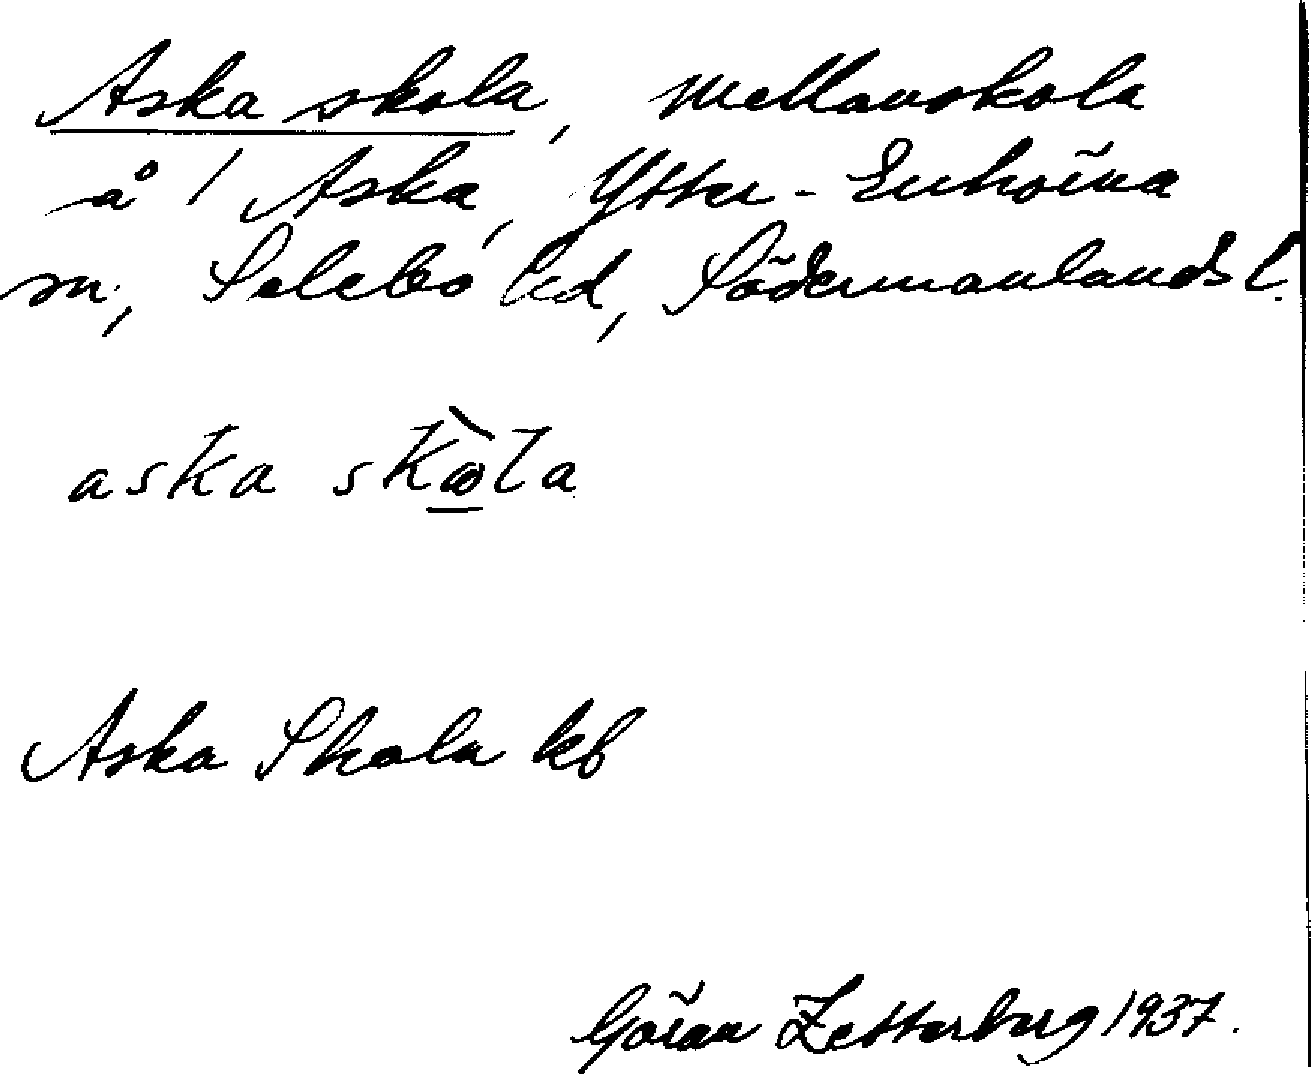 Aska skola, mellanskola
å 1 Aska, Ytter-Enhörna
sn, Selebo hd, Södermanlands l.
aska skò̲la
Aska Skola kb
Göran Zetterberg 1937.